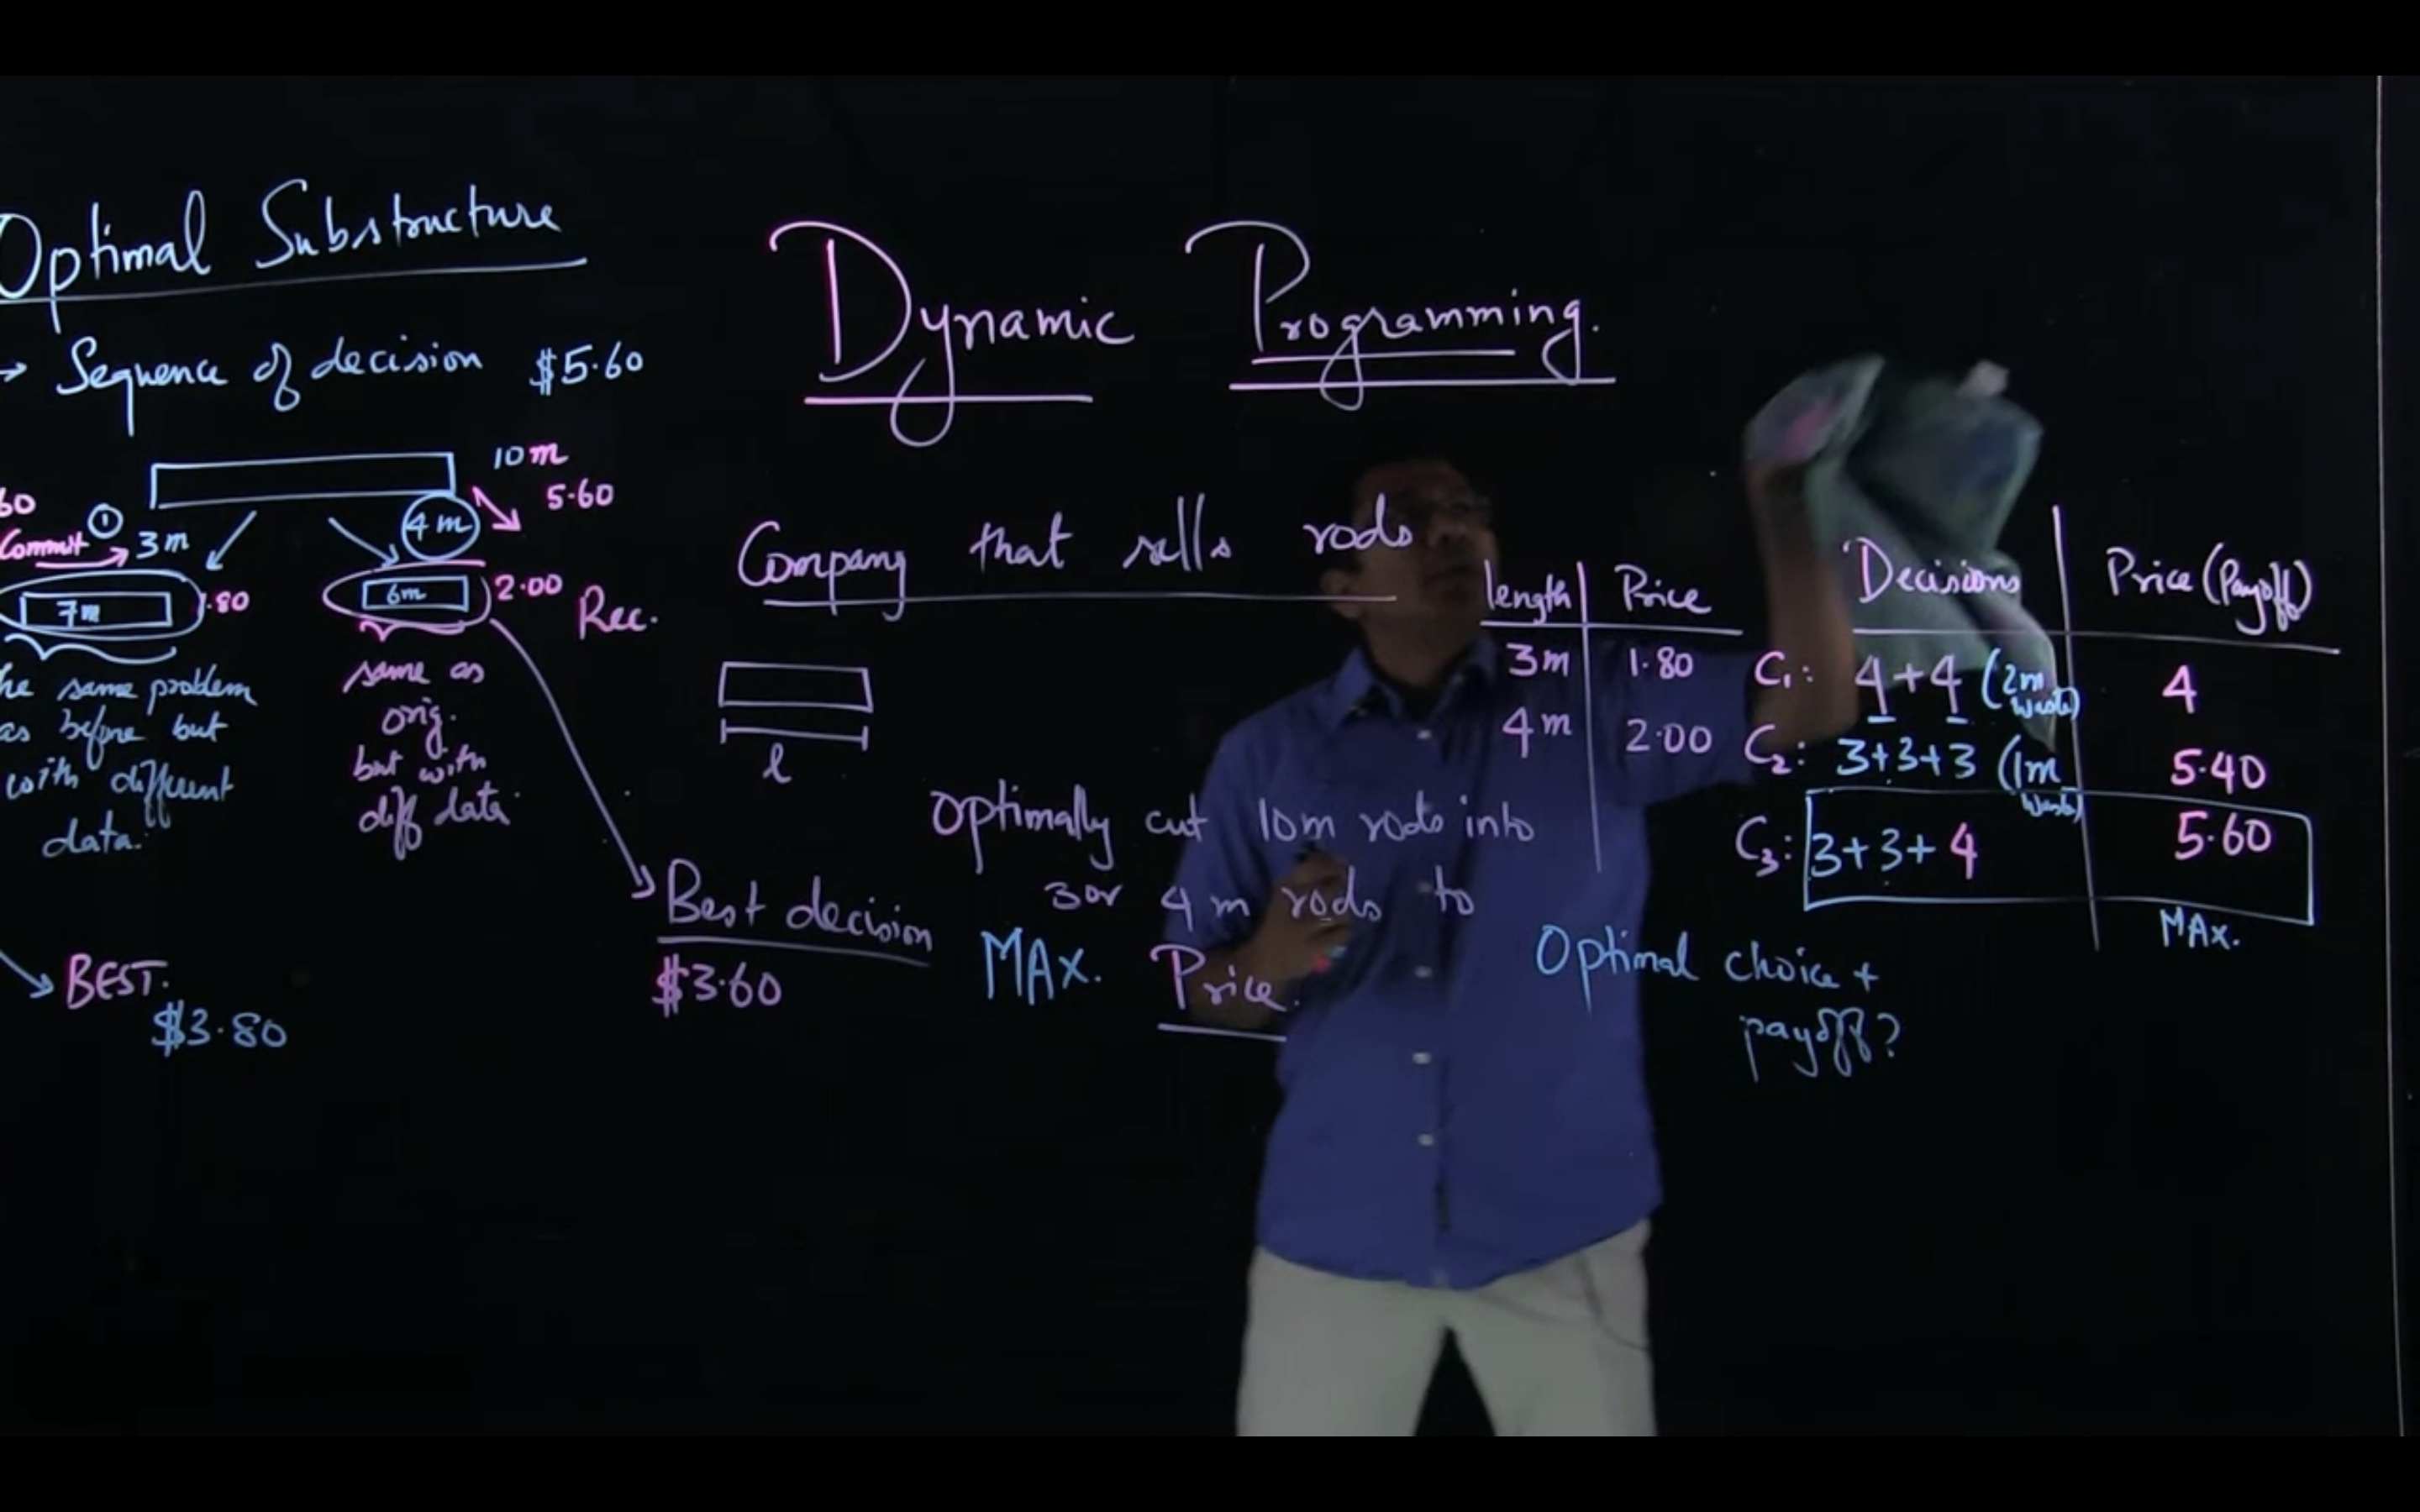 Optimal Substructure
→ Sequence of decision $5.60
10m
5.60
60
Commit → ① 3m
4m
7m
1.80
6m
2.00 Rec.
he same problem
as before but
with different
data.
same as
orig.
but with
diff data
BEST.
$3.80
Best decision
$3.60
Dynamic Programming.
Company that sells rods
l
Optimally cut 10m rods into
3 or 4 m rods to
MAX. Price.
length | Price
3m | 1.80
4m | 2.00
Decisions | Price (Payoff)
C₁: 4+4 (2m waste) | 4
C₂: 3+3+3 (1m waste) | 5.40
C₃: 3+3+4 | 5.60
MAX.
Optimal choice +
payoff?